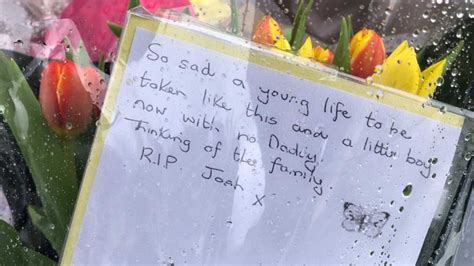 So sad a young life to be
taken like this and a little boy
now with no Dady.
Thinking of the family
R.I.P Josh X